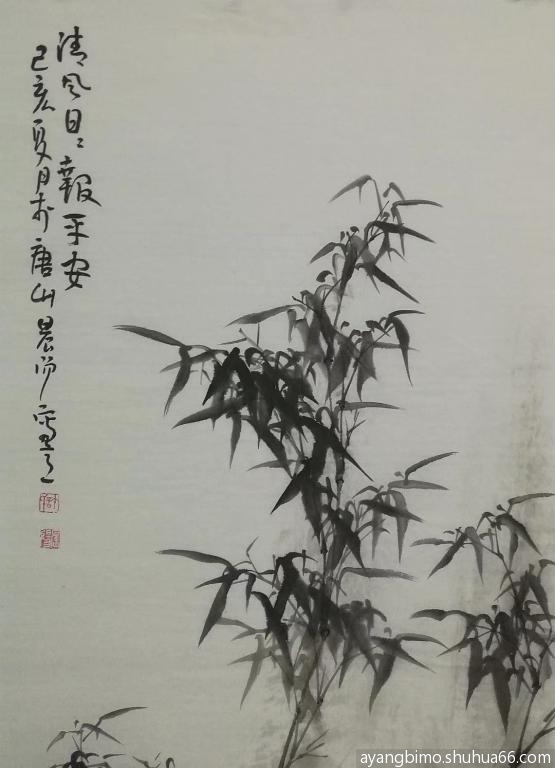 清风日〻報平安
己亥夏月於唐山晨
ayangbimo.shuhua66.com